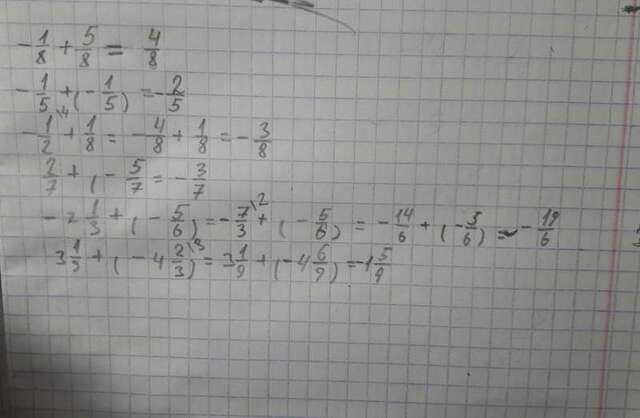 -1/8 + 5/8 = 4/8
-1/5 + (-1/5) = -2/5
-1/2\4 + 1/8 = -4/8 + 1/8 = -3/8
2/7 + (-5/7 = -3/7
-2 1/3 + (-5/6) = -7/3\2 + (-5/6) = -14/6 + (-5/6) = -19/6
3 1/3 + (-4 2/3\3) = 3 1/9 + (-4 6/9) = -1 5/9